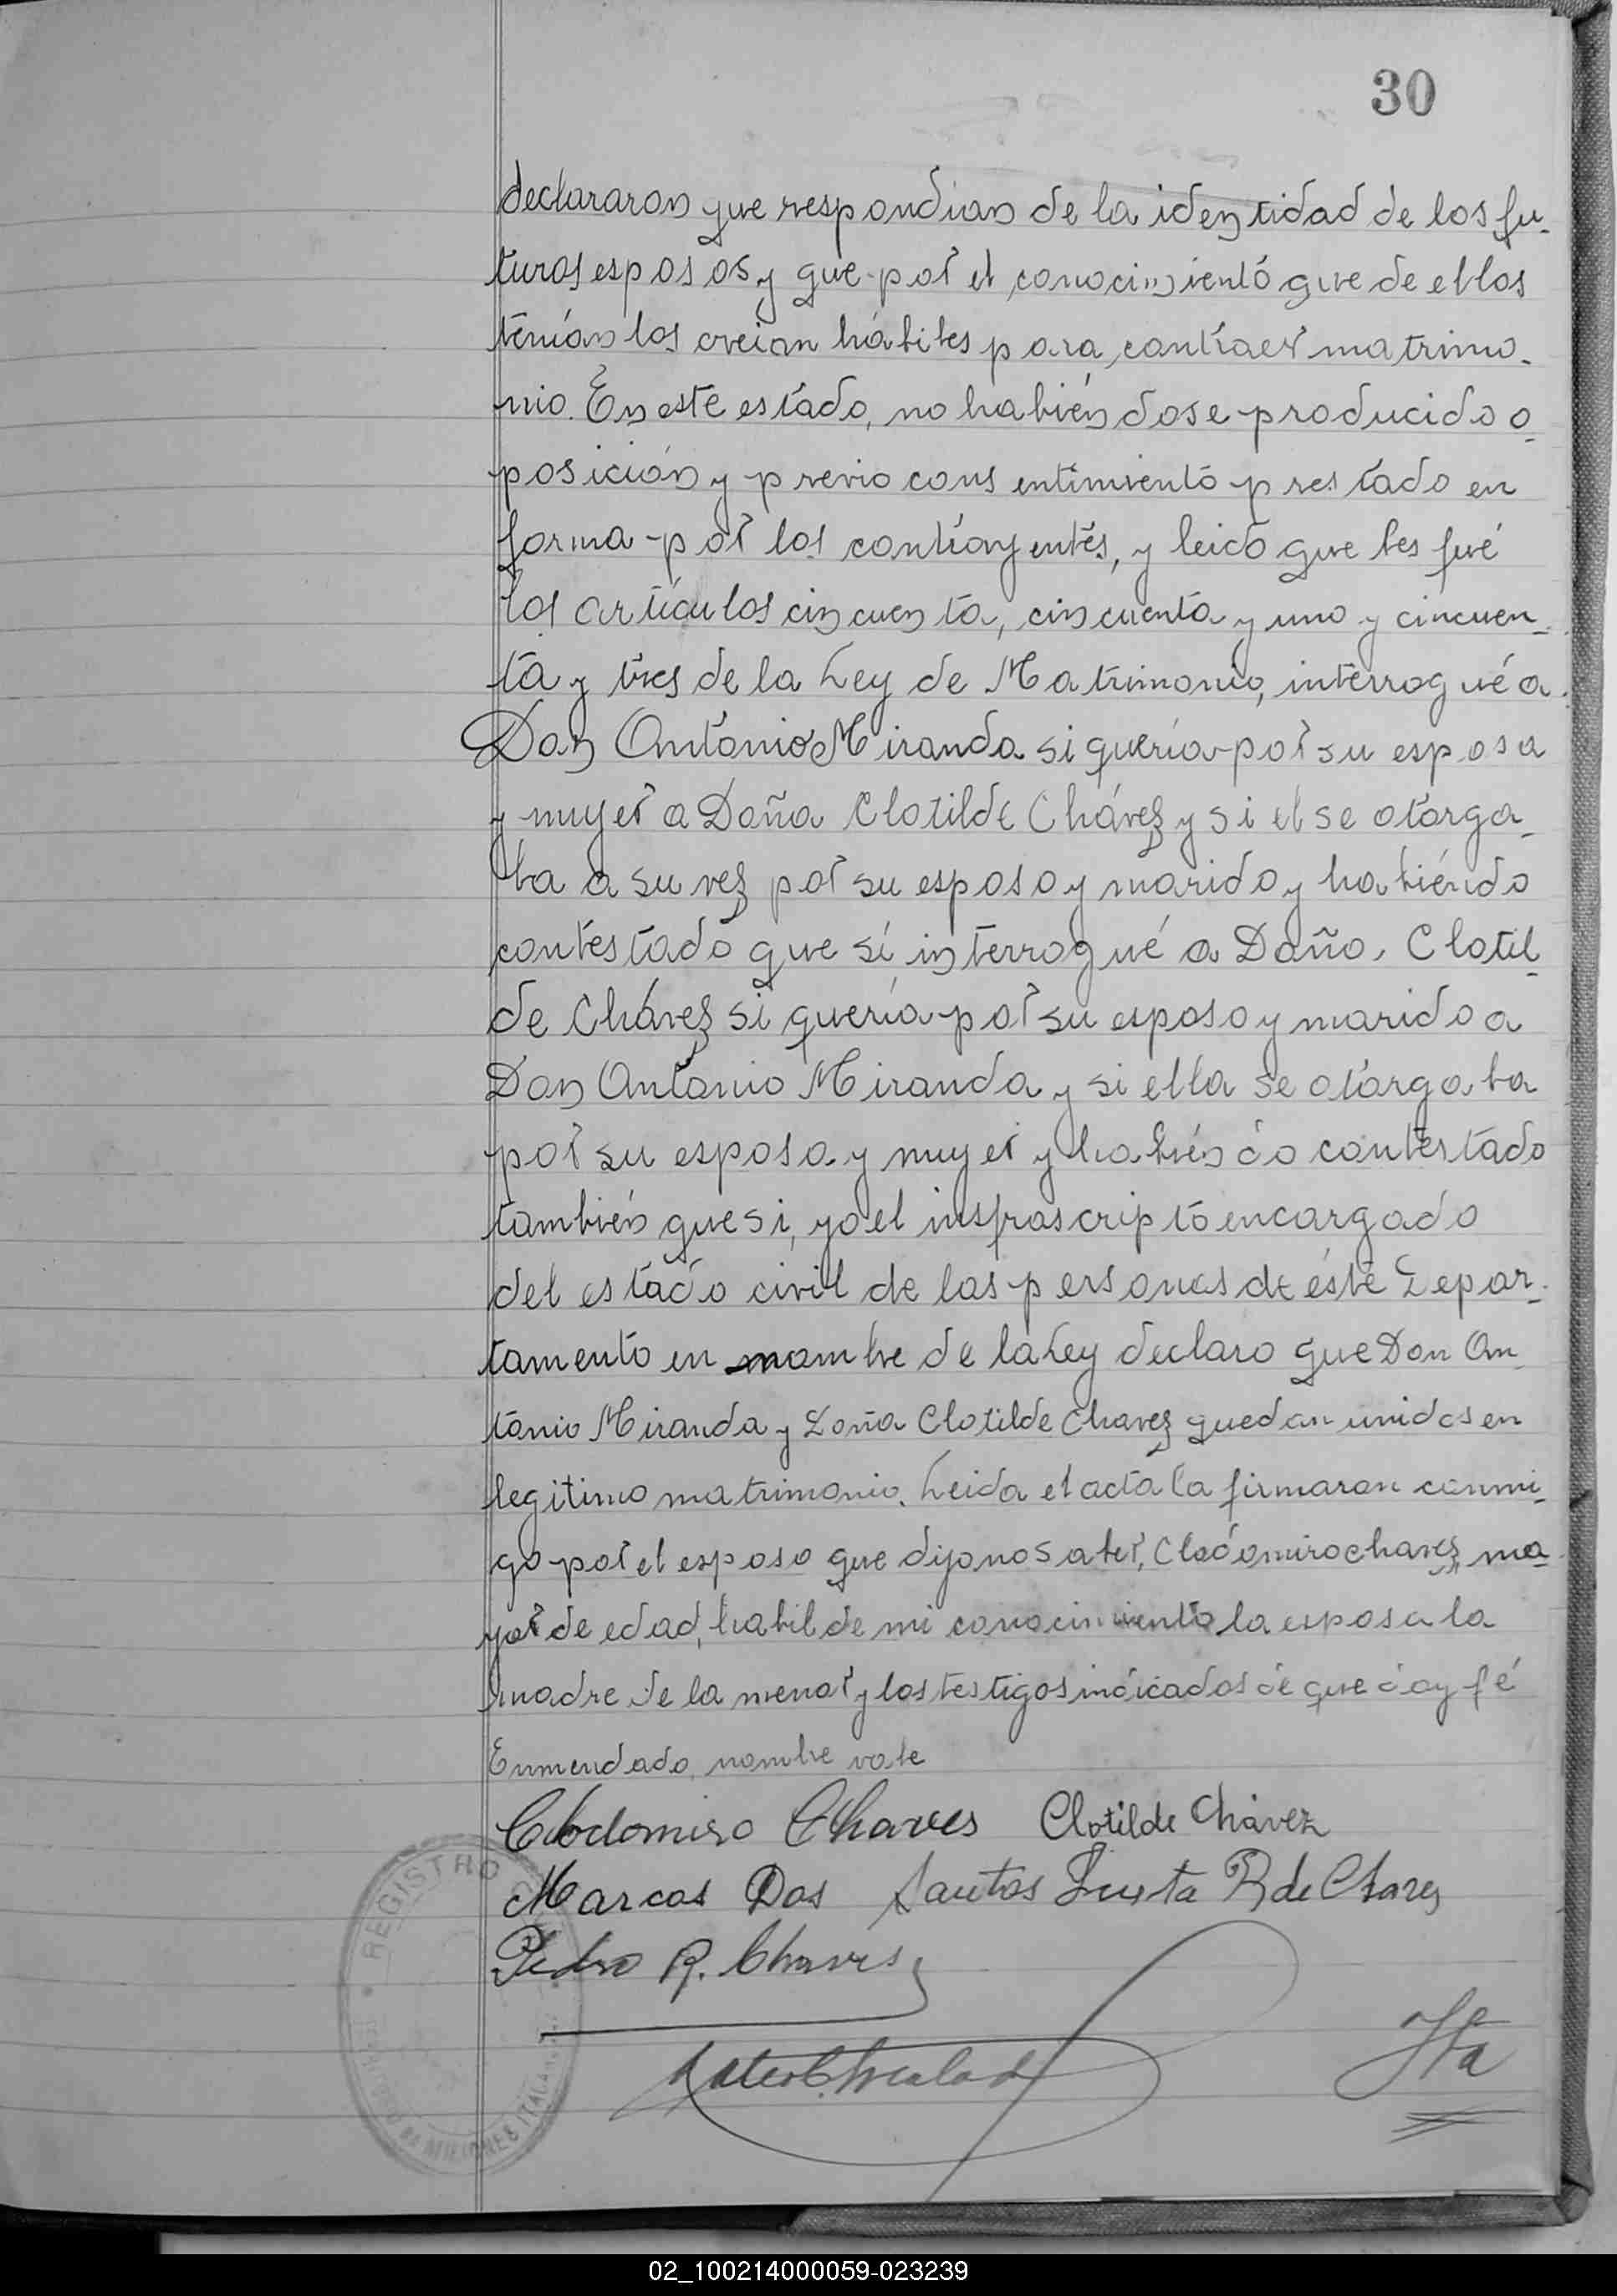 30
declararon que respondian de la identidad de los fu-
turos esposos y que por el conocimiento que de ellos
tenían los creian hábiles para contraer matrimo-
nio. En este estado, no habiéndose producido o-
posición y previo consentimiento prestado en
forma por los contrayentes, y leido que les fué
los artículos cincuenta, cincuenta y uno y cincuen-
ta y tres de la Ley de Matrimonio, interrogué a
Don Antonio Miranda si quería por su esposa
y mujer a Doña Clotilde Chávez y si el se otorga-
ba a su vez por su esposo y marido y habiéndo
contestado que sí interrogué a Doña Clotil-
de Chávez si quería por su esposo y marido a
Don Antonio Miranda y si ella se otorgaba
por su esposa y mujer y habiéndo contestado
también que si, yo el insfrascripto encargado
del estado civil de las personas de éste Depar-
tamento en nombre de la Ley declaro que Don An
tonio Miranda y Doña Clotilde Chavez quedan unidos en
legitimo matrimonio. Leida el acta la firmaron conmi-
go por el esposo que dijo no saber, Clodomiro Chavez, ma-
yor de edad, habil de mi conocimiento la esposa la
madre de la menor y los testigos indicados de que doy fé
Enmendado, nombre vale
Clodomiro Chaves Clotilde Chávez
Marcos Dos Santos Justa R de Chavez
Pedro R. Chaves
REGISTRO
MISIONES
02_100214000059-023239